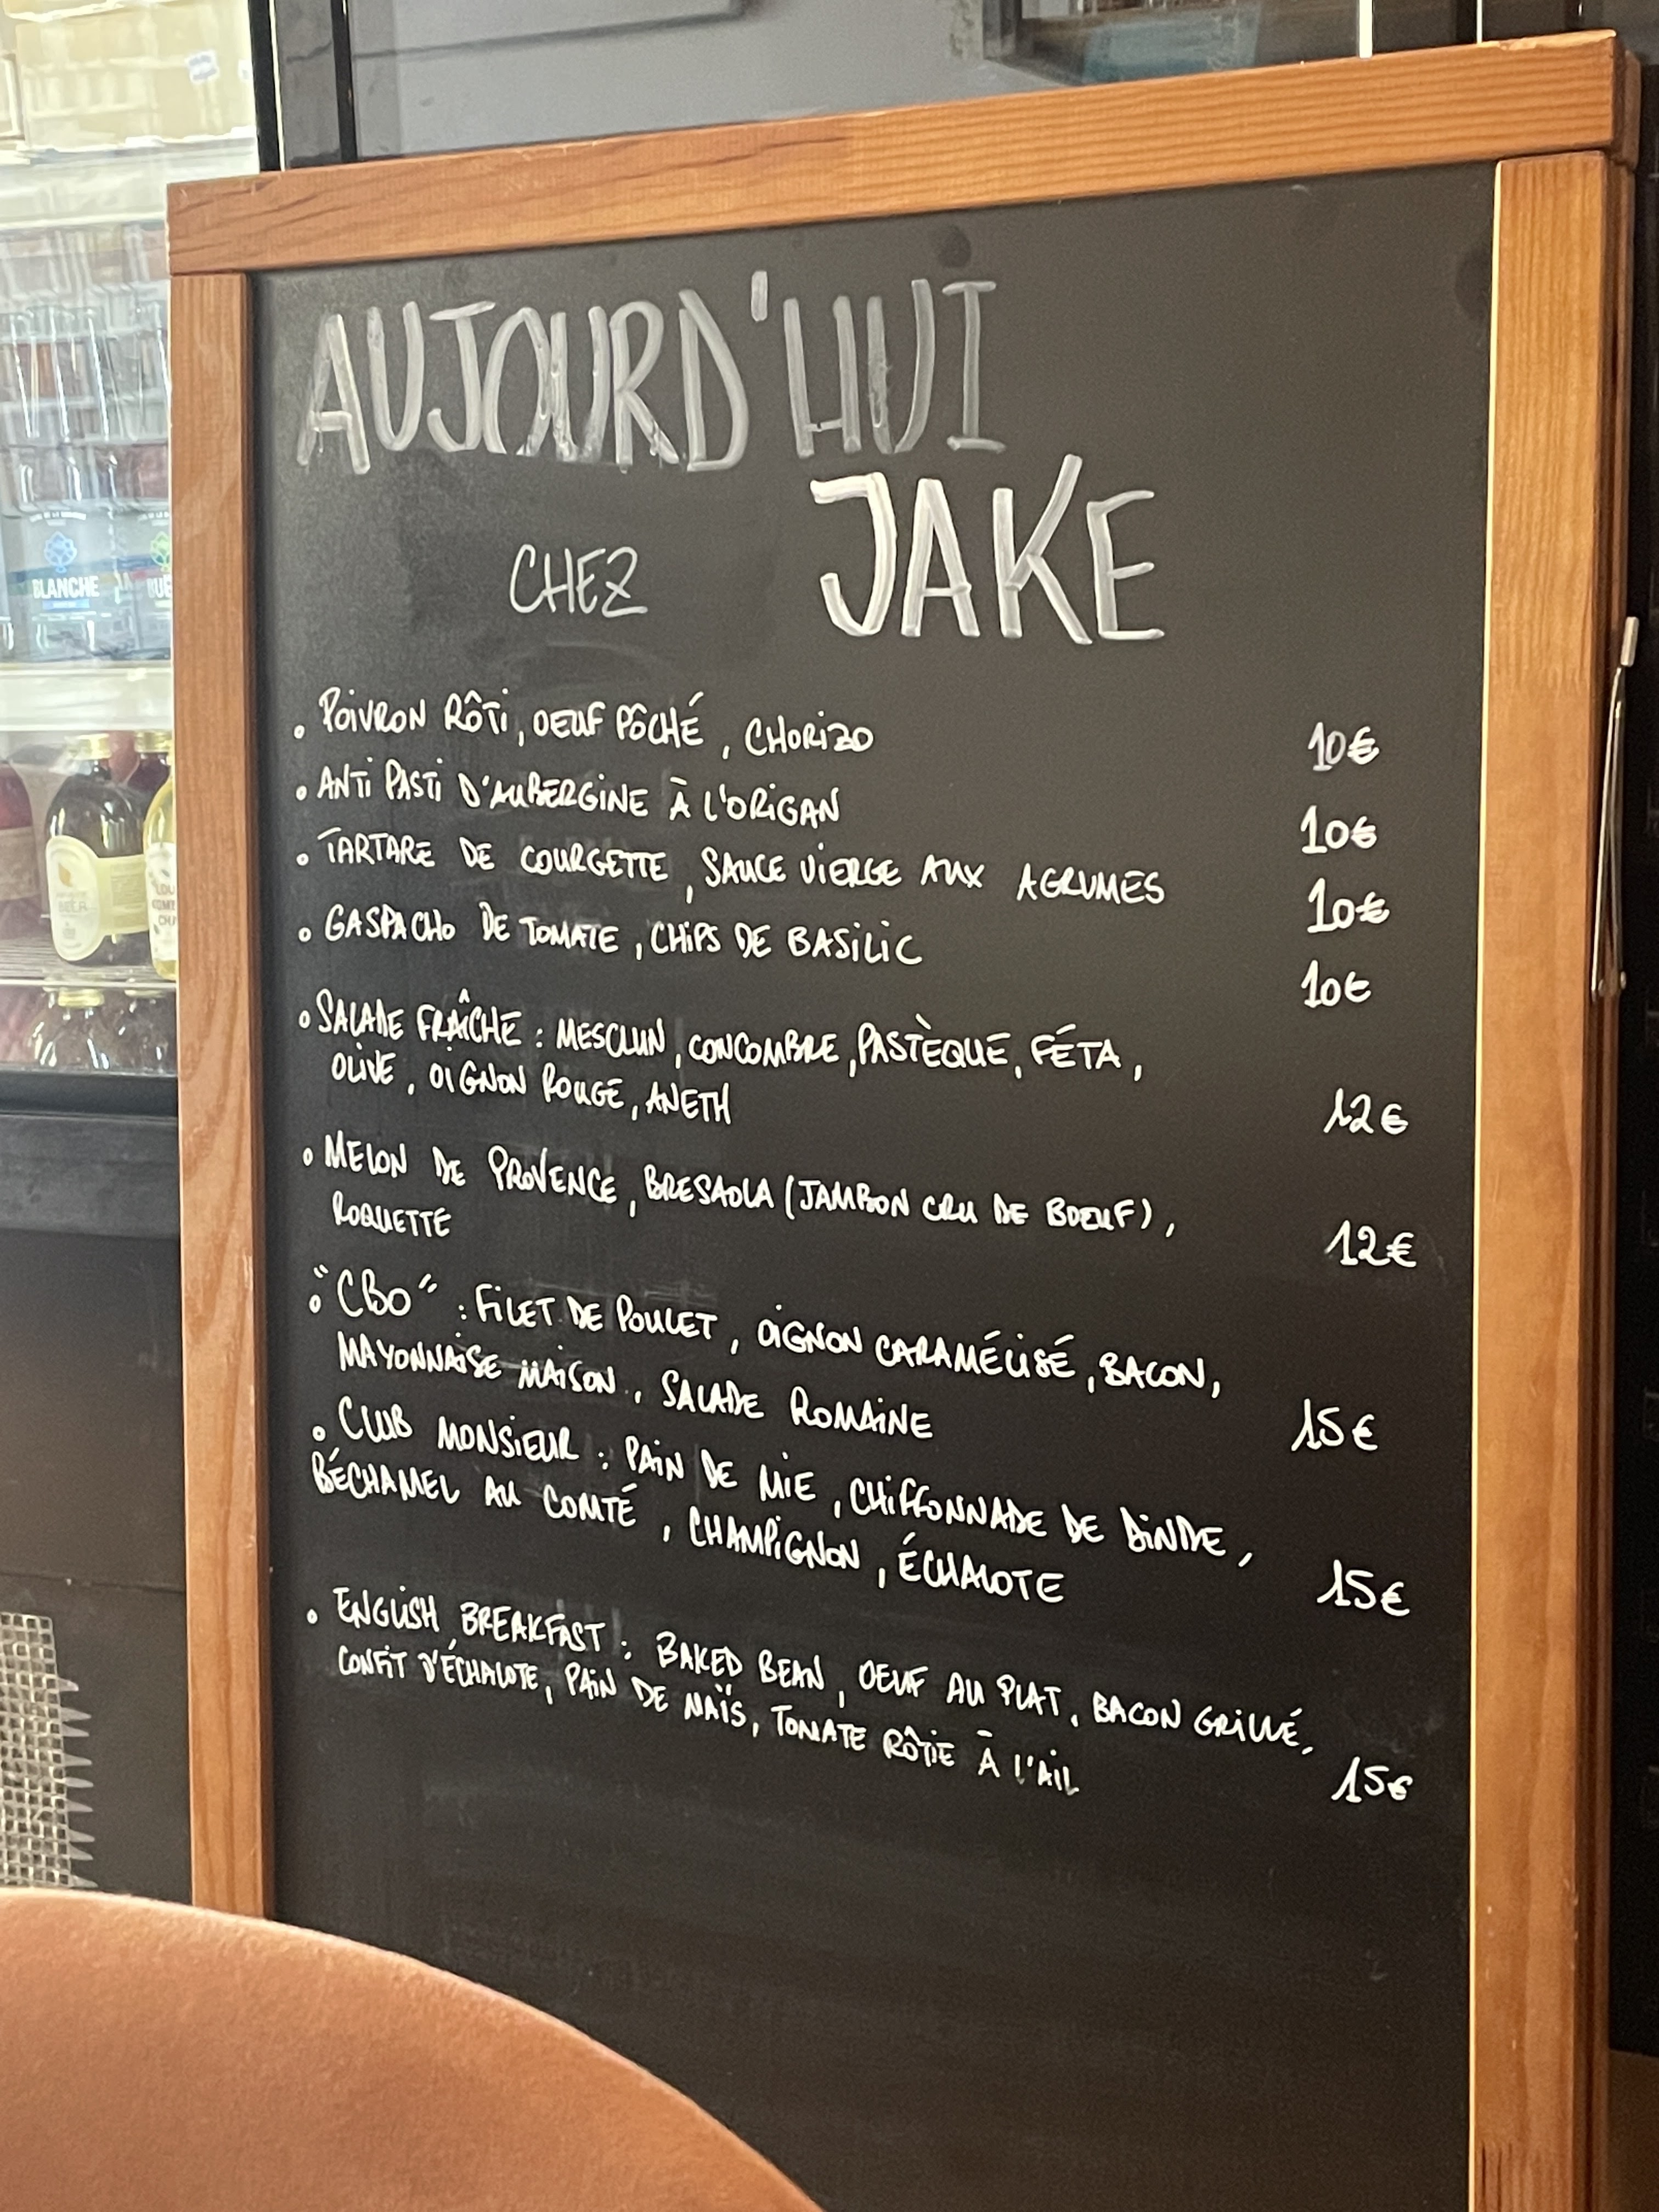 AUJOURD'HUI
CHEZ JAKE
• POIVRON RÔTI, OEUF PÔCHÉ, CHORIZO 10€
• ANTI PASTI D'AUBERGINE À L'ORIGAN 10€
• TARTARE DE COURGETTE, SAUCE VIERGE AUX AGRUMES 10€
• GASPACHO DE TOMATE, CHIPS DE BASILIC 10€
• SALADE FRAÎCHE : MESCLUN, CONCOMBRE, PASTÈQUE, FÉTA,
OLIVE, OIGNON ROUGE, ANETH 12€
• MELON DE PROVENCE, BRESAOLA (JAMBON CRU DE BOEUF),
ROQUETTE 12€
• "CBO" : FILET DE POULET, OIGNON CARAMÉLISÉ, BACON,
MAYONNAISE MAISON, SALADE ROMAINE 15€
• CLUB MONSIEUR : PAIN DE MIE, CHIFFONNADE DE DINDE,
BÉCHAMEL AU COMTÉ, CHAMPIGNON, ÉCHALOTE 15€
• ENGLISH BREAKFAST : BAKED BEAN, OEUF AU PLAT, BACON GRILLÉ,
CONFIT D'ÉCHALOTE, PAIN DE MAÏS, TOMATE RÔTIE À L'AIL 15€
BLANCHE
BEER